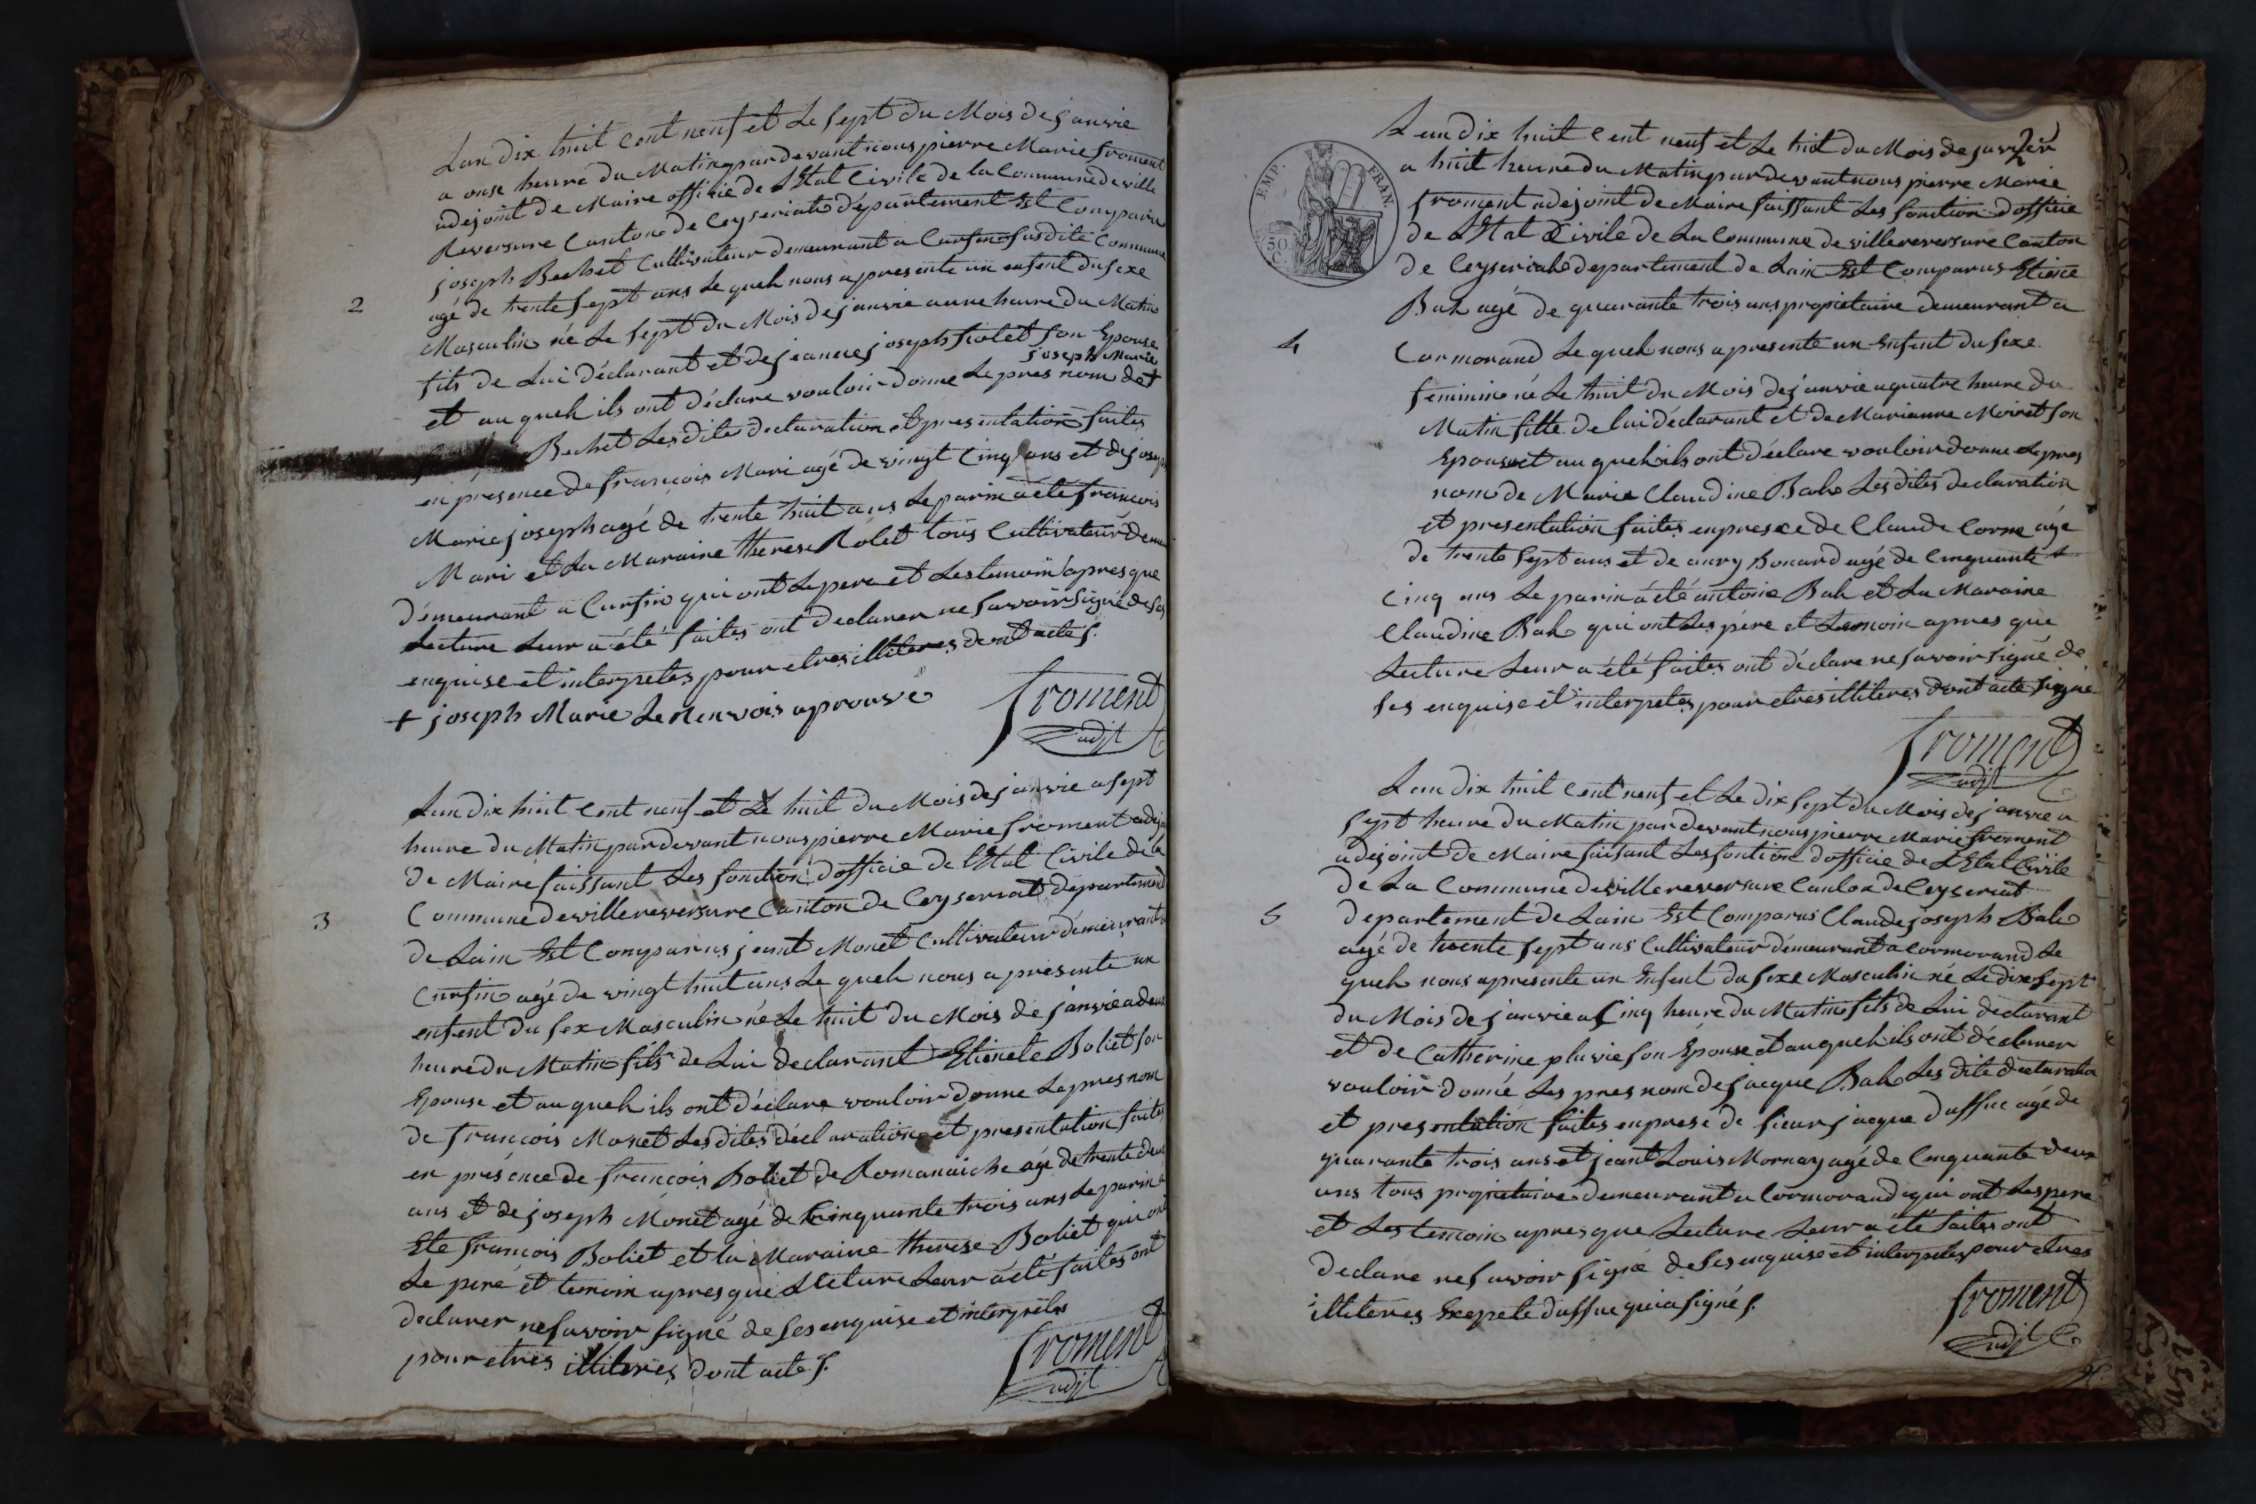 Lan dix huit cent neuf et Le sept du Mois de janvie
a onse heure du Matin pardevant nous pierre Marie froment
adejoint de Maire officie de L'Etat Civile de la Commune de ville
Reversure Canton de Ceyseriat département Est Comparu
joseph Bechet Cultivateur demeurant a Cursin susdite Commune
agé de trente sept ans Le quel nous a presente un enfent du sexe
2
Masculin né Le sept du Mois de janvie a une heure du Matin
fils de Lui déclarant et de jeanne joseph son Epouse
joseph Marie
et au quel ils ont déclare vouloir donne Le pres nom de +
Bechet Les dite declaration et presentation faites
en présence de françois Mari agé de vingt Cinq ans et de joseph
Marie joseph agé de trente huit ans Le parin a été françois
Mari et La Maraine therese Rolet tous Cultivateur
démeurant a Cursin qui ont Le pere et Les temoin apres que
Lecture Leur a été faites ont declarer ne savoir signé de ses
enquise et interpretes pour etres illiteres dont acte f.
+ joseph Marie Le Renvois aprouvé
froment
adjt
Lan dix huit cent neuf et Le huit du Mois de janvie a sept
heure du Matin pardevant nous pierre Marie froment
de Maire faissant Les fonction d'officie de l'Etat Civile de la
3
Commune de villereversure Canton de Ceyseriat département
de Lain Est Comparus jeant Monet Cultivateur démeurant
Cursin agé de vingt huit ans Le quel nous a présente un
enfent du sex Masculin né Le huit du Mois de janvie a deux
heure du Matin fils de Lui declarant Etienete Boliet son
Epouse et au quel ils ont déclare vouloir donne Le pres nom
de françois Monet Les dites déclaration et presentation faites
en présence de françois Boliet de Romanaiche agé de trente deux
ans et de joseph Monet agé de Cinquante trois ans Le parin a
Ete françois Boliet et la Maraine therese Boliet qui ont
Le pere et temoin apres que Lecture Leur a été faites ont
declarer ne savoir signé de ses enquise et interpretes
pour etres illiteres dont acte f.
froment
adjt
2
Lan dix huit Cent neuf et Le huit du Mois de janvier
a huit heure du Matin pardevant nous pierre Marie
froment adejoint de Maire faissant Les fonction d'officie
de L'Etat Civile de La Commune de villereversure Canton
de Ceyseriat departement de Lain Est Comparus Etiene
Bah agé de quarante trois ans propietaire demeurant a
EMP. FRAN.
50 C.
4
Cormorand Le quel nous a presente un Enfent du sexe
feminin né Le huit du Mois de janvie a quatre heure du
Matin fille de lui déclarant et de Marianne Moiret son
Epouse et au quel ils ont déclare vouloir donne Le pres
nom de Marie Claudine Bah Les dites declaration
et presentation faites en presce de Claude Corne agé
de trente sept ans et de Bonard agé de Cinquante
Cinq ans Le parin a été antoine Bah et La Maraine
Claudine Bah qui ont Les père et temoin apres que
Lecture Leur a été faites ont déclare ne savoir signé de
ses enquise et interpretes pour etres illiteres dont acte signe
froment
adjt
Lan dix huit Cent neuf et Le dix sept du Mois de janvie a
sept heure du Matin pardevant nous pierre Marie froment
adejoint de Maire faisant Les fontion d'officie de L'Etat Civile
de La Commune de villereversure Canton de Ceyseriat
5
departement de Lain Est Comparus Claude joseph Bah
agé de trente sept ans Cultivateur démeurant a Cormorand Le
quel nous a presente un Enfent du sexe Masculin né Le dix sept
du Mois de janvie a Cinq heure du Matin fils de Lui declarant
et de Catherine pluvie son Epouse et au quel ils ont déclarer
vouloir donné Les pres nom de jacque Bah Les dite declaration
et presentation faites en presé de sieur jacque Duffue agé de
quarante trois ans et jeant Louis Mornay agé de Cinquante deux
ans tous propietaire demeurant a Cormorand qui ont Les pere
et Les temoin apres que Lecture Leur a été faites ont
declare ne savoir signé de ses enquise et interpretes pour etres
illiteres Exepete Duffue qui a signé f.
froment
adjt